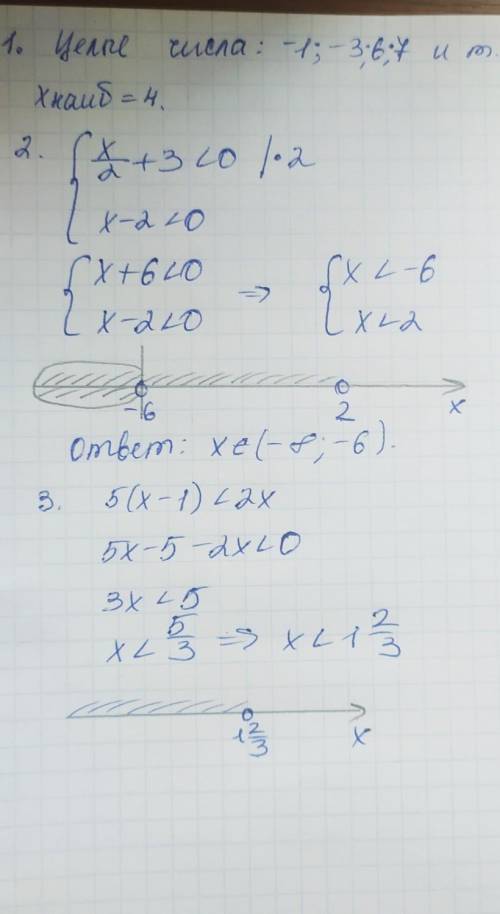 1. Целые числа: -1; -3; 6; 7 и т.
Xнаиб = 4.
2. { x/2 + 3 < 0 | · 2
x - 2 < 0
{ x + 6 < 0 ⇒ { x < -6
x - 2 < 0 x < 2
-6 2 x
Ответ: x ∈ (-∞; -6).
3. 5(x - 1) < 2x
5x - 5 - 2x < 0
3x < 5
x < 5/3 ⇒ x < 1 2/3
1 2/3 x